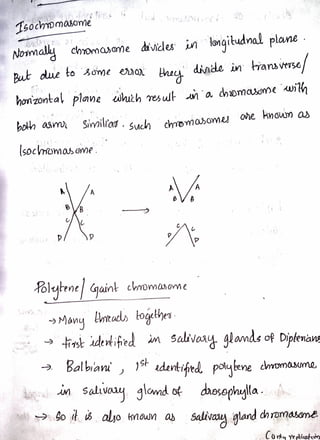 Isochromasome
Normally chromosome divides in longitudnal plane.
But due to some error they divide in transverse/
horizontal plane which result in a chromosome with
both arms similiar. such chromosomes are known as
Isochromasome.
A A A A
B B B B
C C C C
D D D D
Polytene/ Gaint chromasome
→ Many threads together.
→ first identified in salivary glands of Dipterians
→ Balbiani, 1st identified polytene chromasome
in salivary gland of drosophylla.
→ So it is also known as salivary gland chromasome